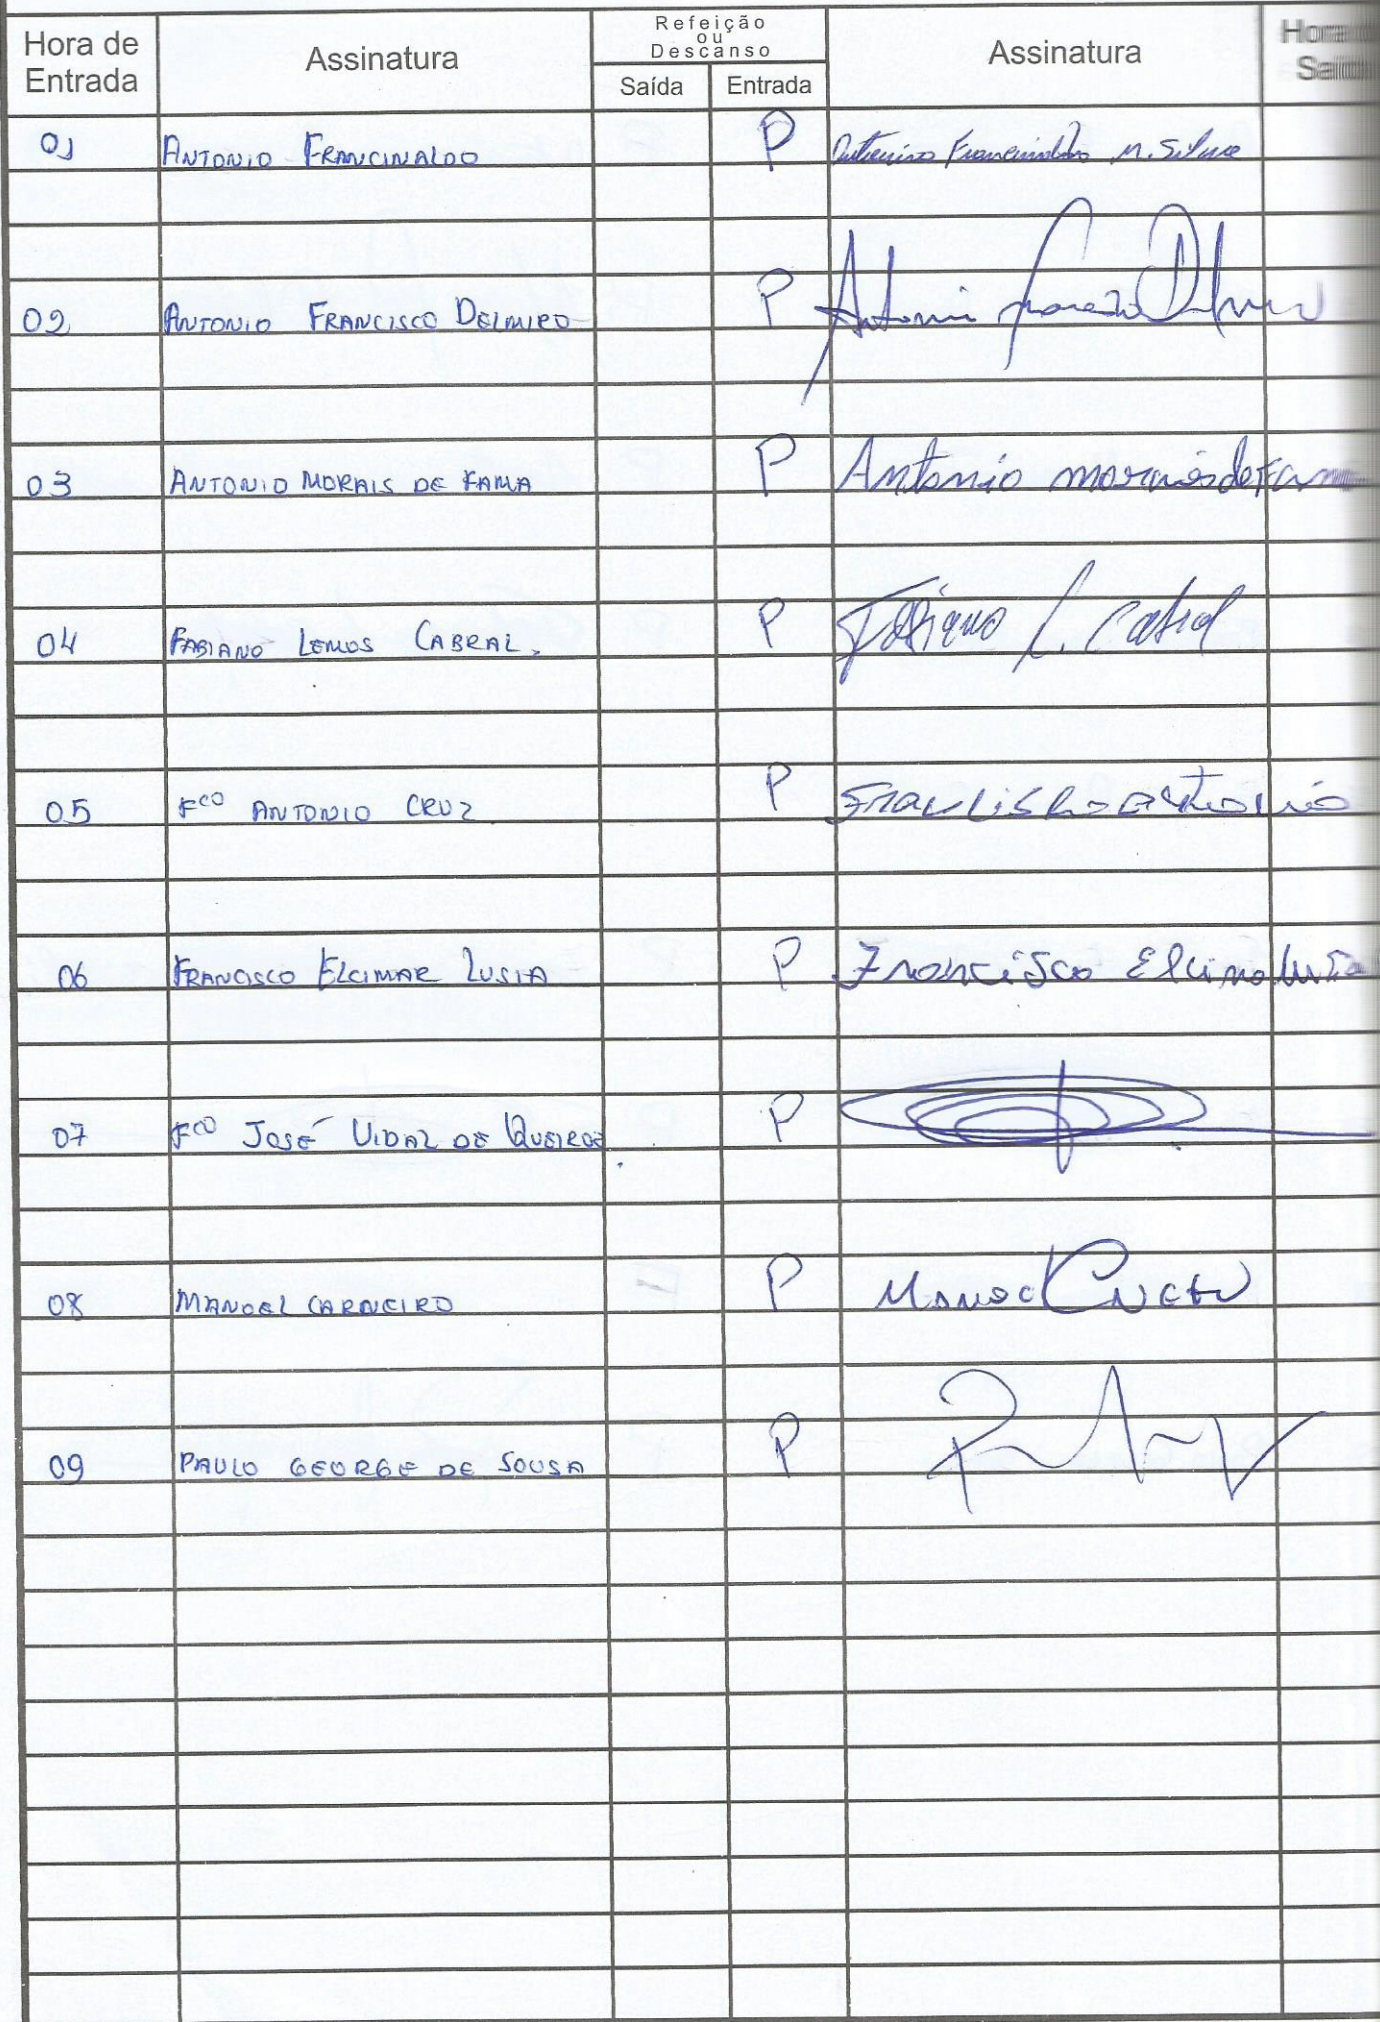 Hora de Entrada Assinatura Refeição ou Descanso Saída Entrada Assinatura
01 ANTONIO FRANCINALDO P Antonio Francinaldo M. Silva
02 ANTONIO FRANCISCO DELMIRO P Antonio Francisco Delmiro
03 ANTONIO MORAIS DE FAMA P Antonio morais de Fam
04 FABIANO LEMOS CABRAL. P Fabiano L. Cabral
05 Fco ANTONIO CRUZ P
06 FRANCISCO ELCIMAR LUSIA P Francisco Elcima lusia
07 Fco JOSÉ VIDAL DE QUEIROZ P
08 MANOEL CARNEIRO P Manoel C Neto
09 PAULO GEORGE DE SOUSA P